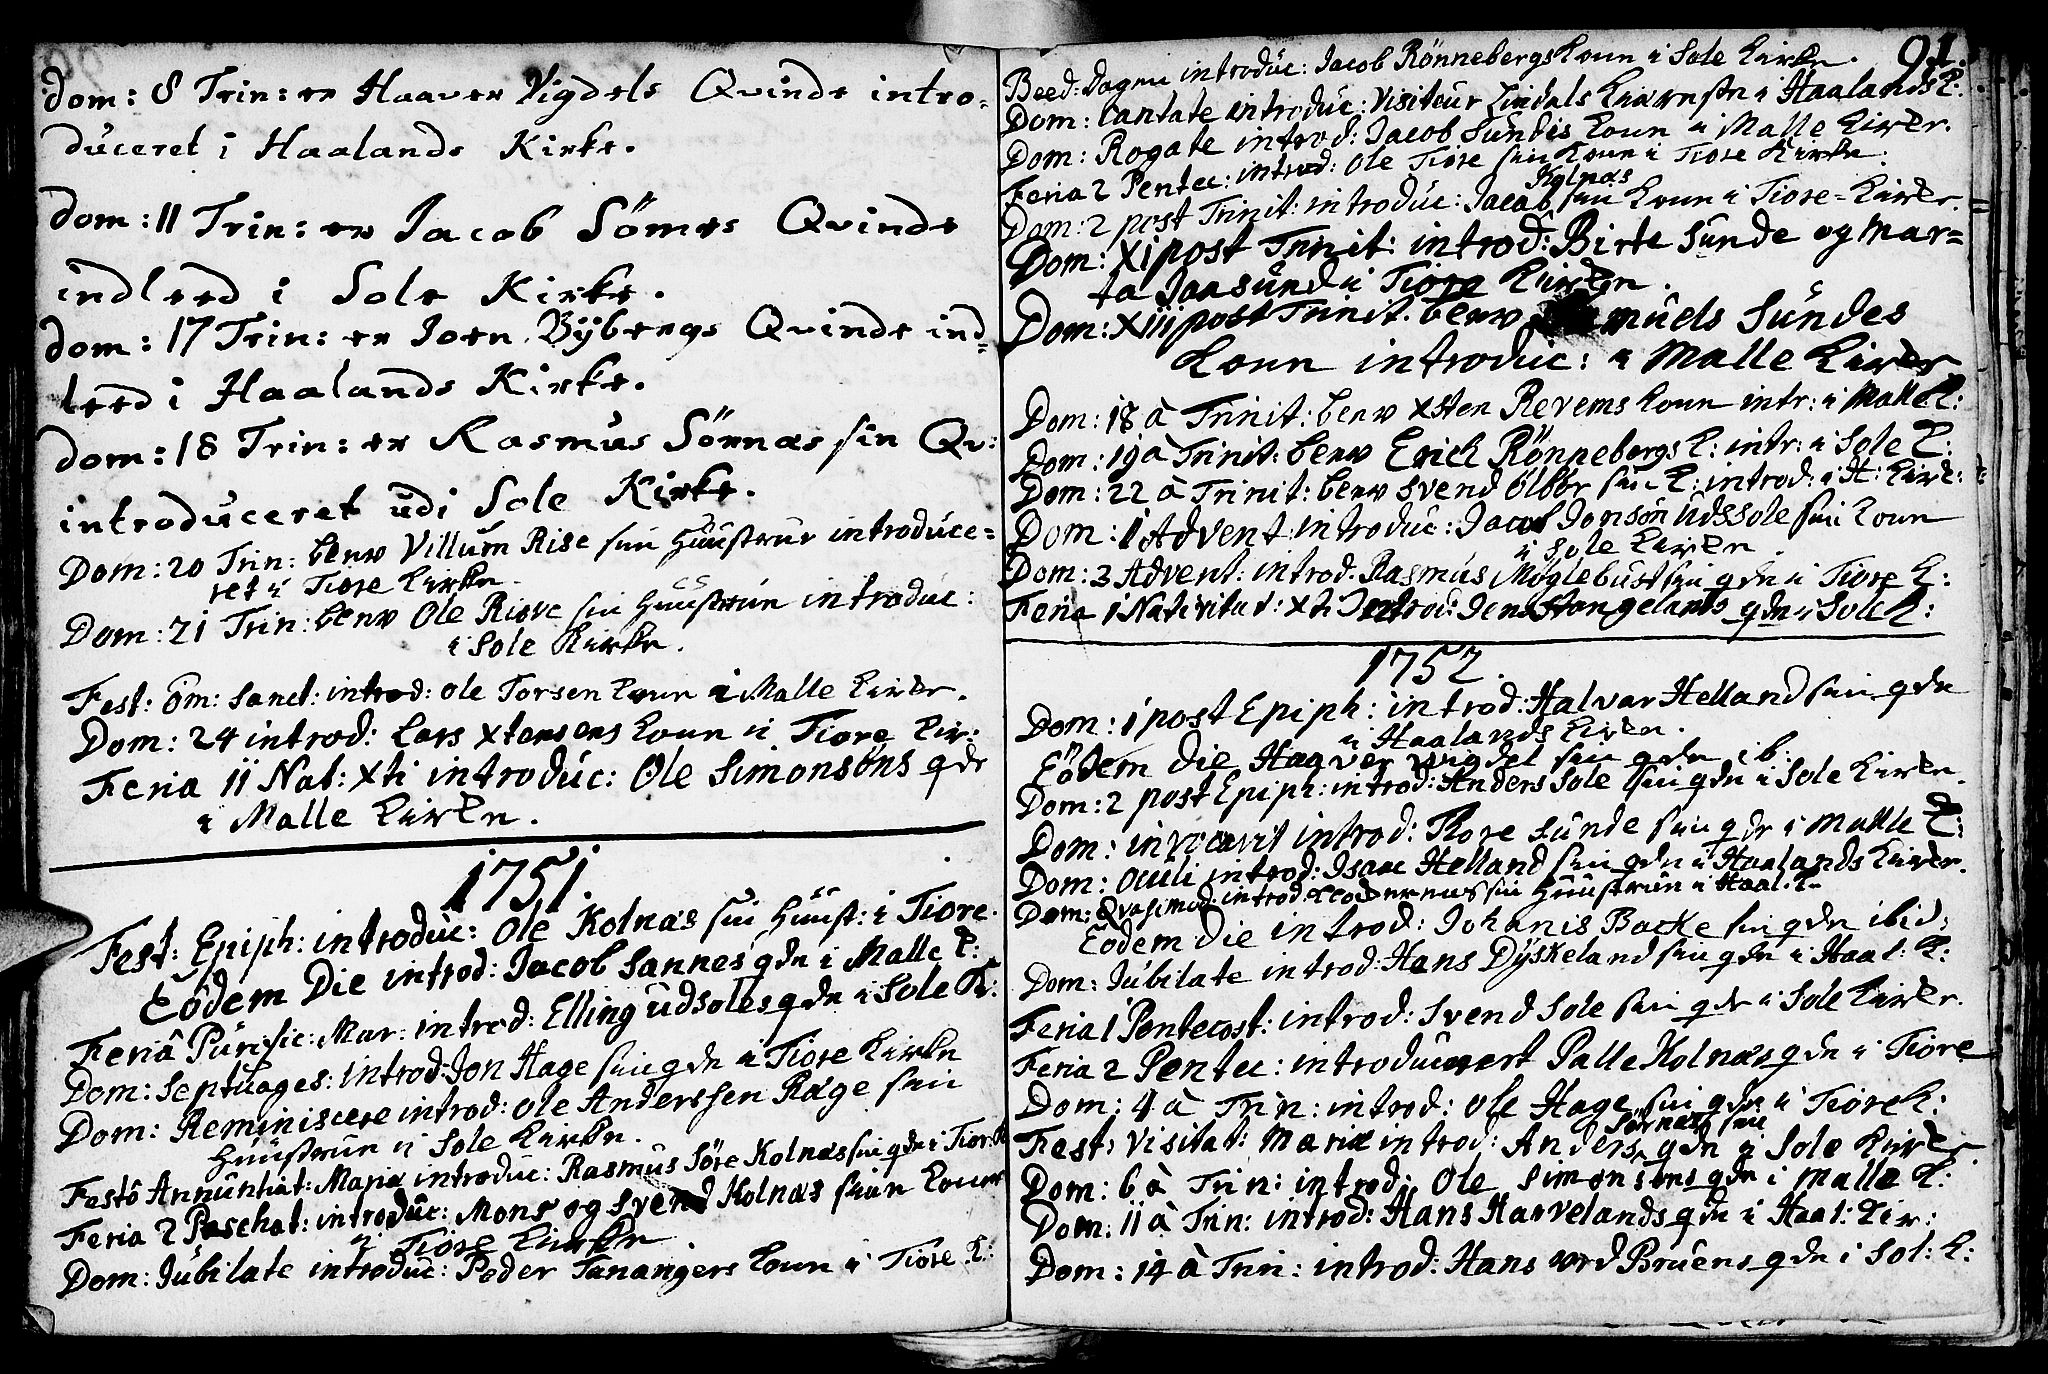 dom: 8 Trin: er Haaver Vigdels Qvinde intro-
duceret i Haalands Kirke.
dom: 11 Trin: er Jacob Sömes Qvinde
indleed i Sole Kirke.
dom: 17 Trin: er Joen Bÿbergs Qvinde ind-
leed i Haalands Kirke.
dom: 18 Trin: er Rasmus Sörnæs sin Qv:
introduceret udi Sole Kirke.
Dom: 20 Trin: blew Villum Rise sin Huustrue introduce=
ret i Tiore Kirke.
Dom: 21 Trin: blew Ole Risve sin Huustrue introduc:
i Sole Kirke.
Fest: om: Sanct: introd: Ole Torsen Kone i Malle Kirke.
Dom: 24 introd: Lars Xtensens Kone i Tiore Kir:
Feria II Nat: Xti introduc: Ole Simonsöns qde
i Malle Kirke.
1751.
Fest: Epiph: introduc: Ole Kolnæs sin Huust: i Tiore.
Eodem Die introd: Jacob Sannes qde i Malle K:
Feria Purific: Mar: introd: Elling udsoles qde i Sole K:
Dom: Septuages: introd: Jon Hage sin qde i Tiore Kirke
Dom: Reminiscere introd: Ole Anderssen Ræge sin
Huustrue i Sole Kirke.
Festo Annuntiat: Mariæ introduc: Rasmus Söre Kolnæs sin qde i Tior:K
Feria 2 Paschat: introduc: Mons og Svend Kolnæs sine Koner
i Tiore Kirke
Dom: Jubilate introduc: Peder Tanangers Kone i Tiore K:
91.
Beed:Dagen introduc: Jacob Rönnebergs Kone i Sole Kirke.
Dom: Cantate introduc: Visiteur Lindals Kiæreste i Haalands K:
Dom: Rogate introd: Jacob Sundes Kone i Malle Kirke.
Feria 2 Pentec: introd: Ole Tiore sin Kone i Tiore Kirke.
Kolnæs
Dom: 2 post Trinit: introduc: Jacob sin Kone i Tiore-Kirke.
Dom: XI post Trinit: introd: Birte Sunde og Mar=
ta Jaasund i Tiore Kirke.
Dom: XIII post Trinit. blew Samuels Sundes
Kone introduc: i Malle Kirke
Dom: 18 à Trinit: blew Xsten Revems Kone intr: i Malle K:
Dom: 19 à Trinit: blew Erich Rönnebergs K: intr: i Sole K:
Dom: 22 à Trinit: blew Svend Ölbör sin K: introd: i H: Kirk:
Dom: 1 Advent introduc: Jacob Jonsön Udssole sin Kone
i Sole Kirke.
Dom: 3 Advent: introd. Rasmus Möglebust sin qde i Tiore K:
Feria 1 Nativitat: Xti Introd: Jens Stangelands qde i Sole K:
1752.
Dom: 1 post Epiph: introd: Halvar Helland sin qde
i Haalands Kirke.
Eodem Die Haaver vigdel sin qde ib:
Dom: 2 post Epiph: introd: Anders Sole sin qde i Sole Kirke.
Dom: invocavit introd: Tore Sunde sin qde i Malle K:
Dom: Oculi introd: Isaac Helland sin qde i Haalands Kirke.
Dom: Qvasimod: introd: sin Huustrue i Haal: K.
Eodem Die introd: Johanis Backe sin qde ibid:
Dom: Jubilate introd: Hans Dÿskeland sin qde i Haal: K:
Feria 1 Pentecost: introd: Svend Sole sin qde i Sole Kirke.
Feria 2 Pentec: introduceret Palle Kolnæs qde i Tiore
Dom: 4 à Trin: introd: Ole Hage sin qde i Tiore K:
Sörnæs sin
Fest: Visitat: Mariæ introd: Anders qde i Sole Kirke
Dom: 6 à Trin: introd: Ole Simonsens qde i Malle K:
Dom: 11 à Trin: introd: Hans Harvelands qde i Haal: Kir:
Dom: 14 à Trin: introd: Hans ved Bruens qde i Sol: K: